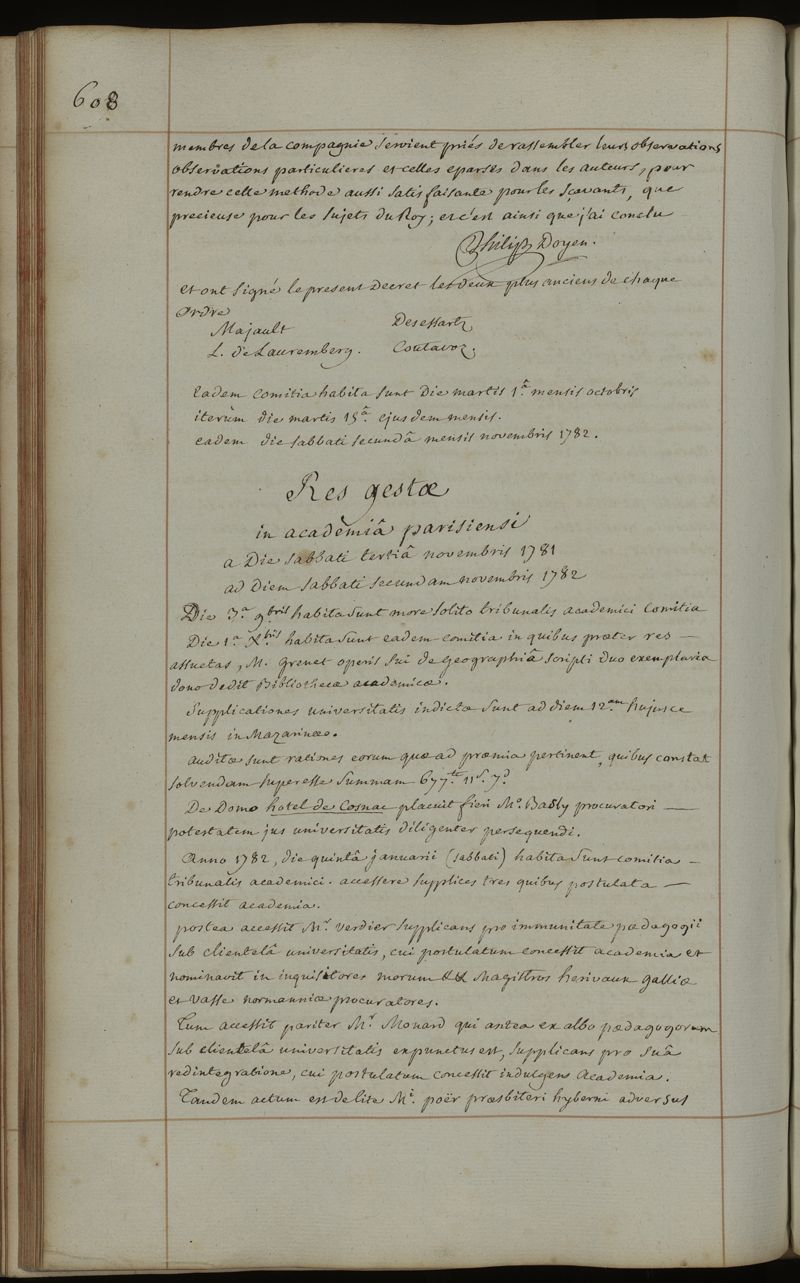 608
membres de la compagnie seroient priés de rassembler leurs observations
observations particulieres et celles eparses dans les auteurs, pour
rendre cette methode aussi satisfaisante pour les sçavants, que
precieuse pour les sujets du Roy; et c'est ainsi que j'ai conclu
Philip Doyen.
et ont signé le present decret les deux plus anciens de chaque
ordre
Majault Desessartz
L. de Lauremberg. Coutavoz.
Eadem comitia habita sunt Die martis 1ª. mensis octobris
iterùm die martis 15ª. ejusdem mensis.
eadem die sabbati secundâ mensis novembris 1782.
Res gestæ
in academiâ parisiensi
a Die sabbati tertiâ novembris 1781
ad Diem sabbati secundam novembris 1782
Die 3ª 9bris habita sunt more solito tribunalis academici Comitia
Die 1ª Xbris habita sunt eadem comitia in quibus præter res —
assuetas, M. Grenet operis sui de geographiâ scripti duo exemplaria
dono dedit Bibliothecæ academicæ.
Supplicationes universitatis indictæ sunt ad diem 12am hujusce
mensis in Mazarinæo.
auditæ sunt rationes eorum quæ ad præmia pertinent, quibus constat
solvendam superesse summam 677tt 11s. 7d
De Domo hotel de Cosnac placuit fieri Mo. Basly procuratori —
potestatem jus universitatis diligenter persequendi.
Anno 1782, die quintâ januarii (sabbati) habita sunt comitia —
tribunalis academici. accessere supplices tres quibus postulata —
concessit academia.
postea accessit Mr. Verdier supplicans pro immunitate pædagogii
sub clientelâ universitatis, cui postulatum concessit academia et
nominavit in inquisitores morum Magistros herivaux galliæ
et Vasse normanniæ procuratores.
Tum accessit pariter Mr. Monard qui antea ex albo pædagogorum
sub clientelâ universitatis expunctus est, supplicans pro suâ
redintegratione, cui postulatum concessit indulgens Academia.
Tandem actum est de lite Mi. poër præsbiteri hyberni adversus